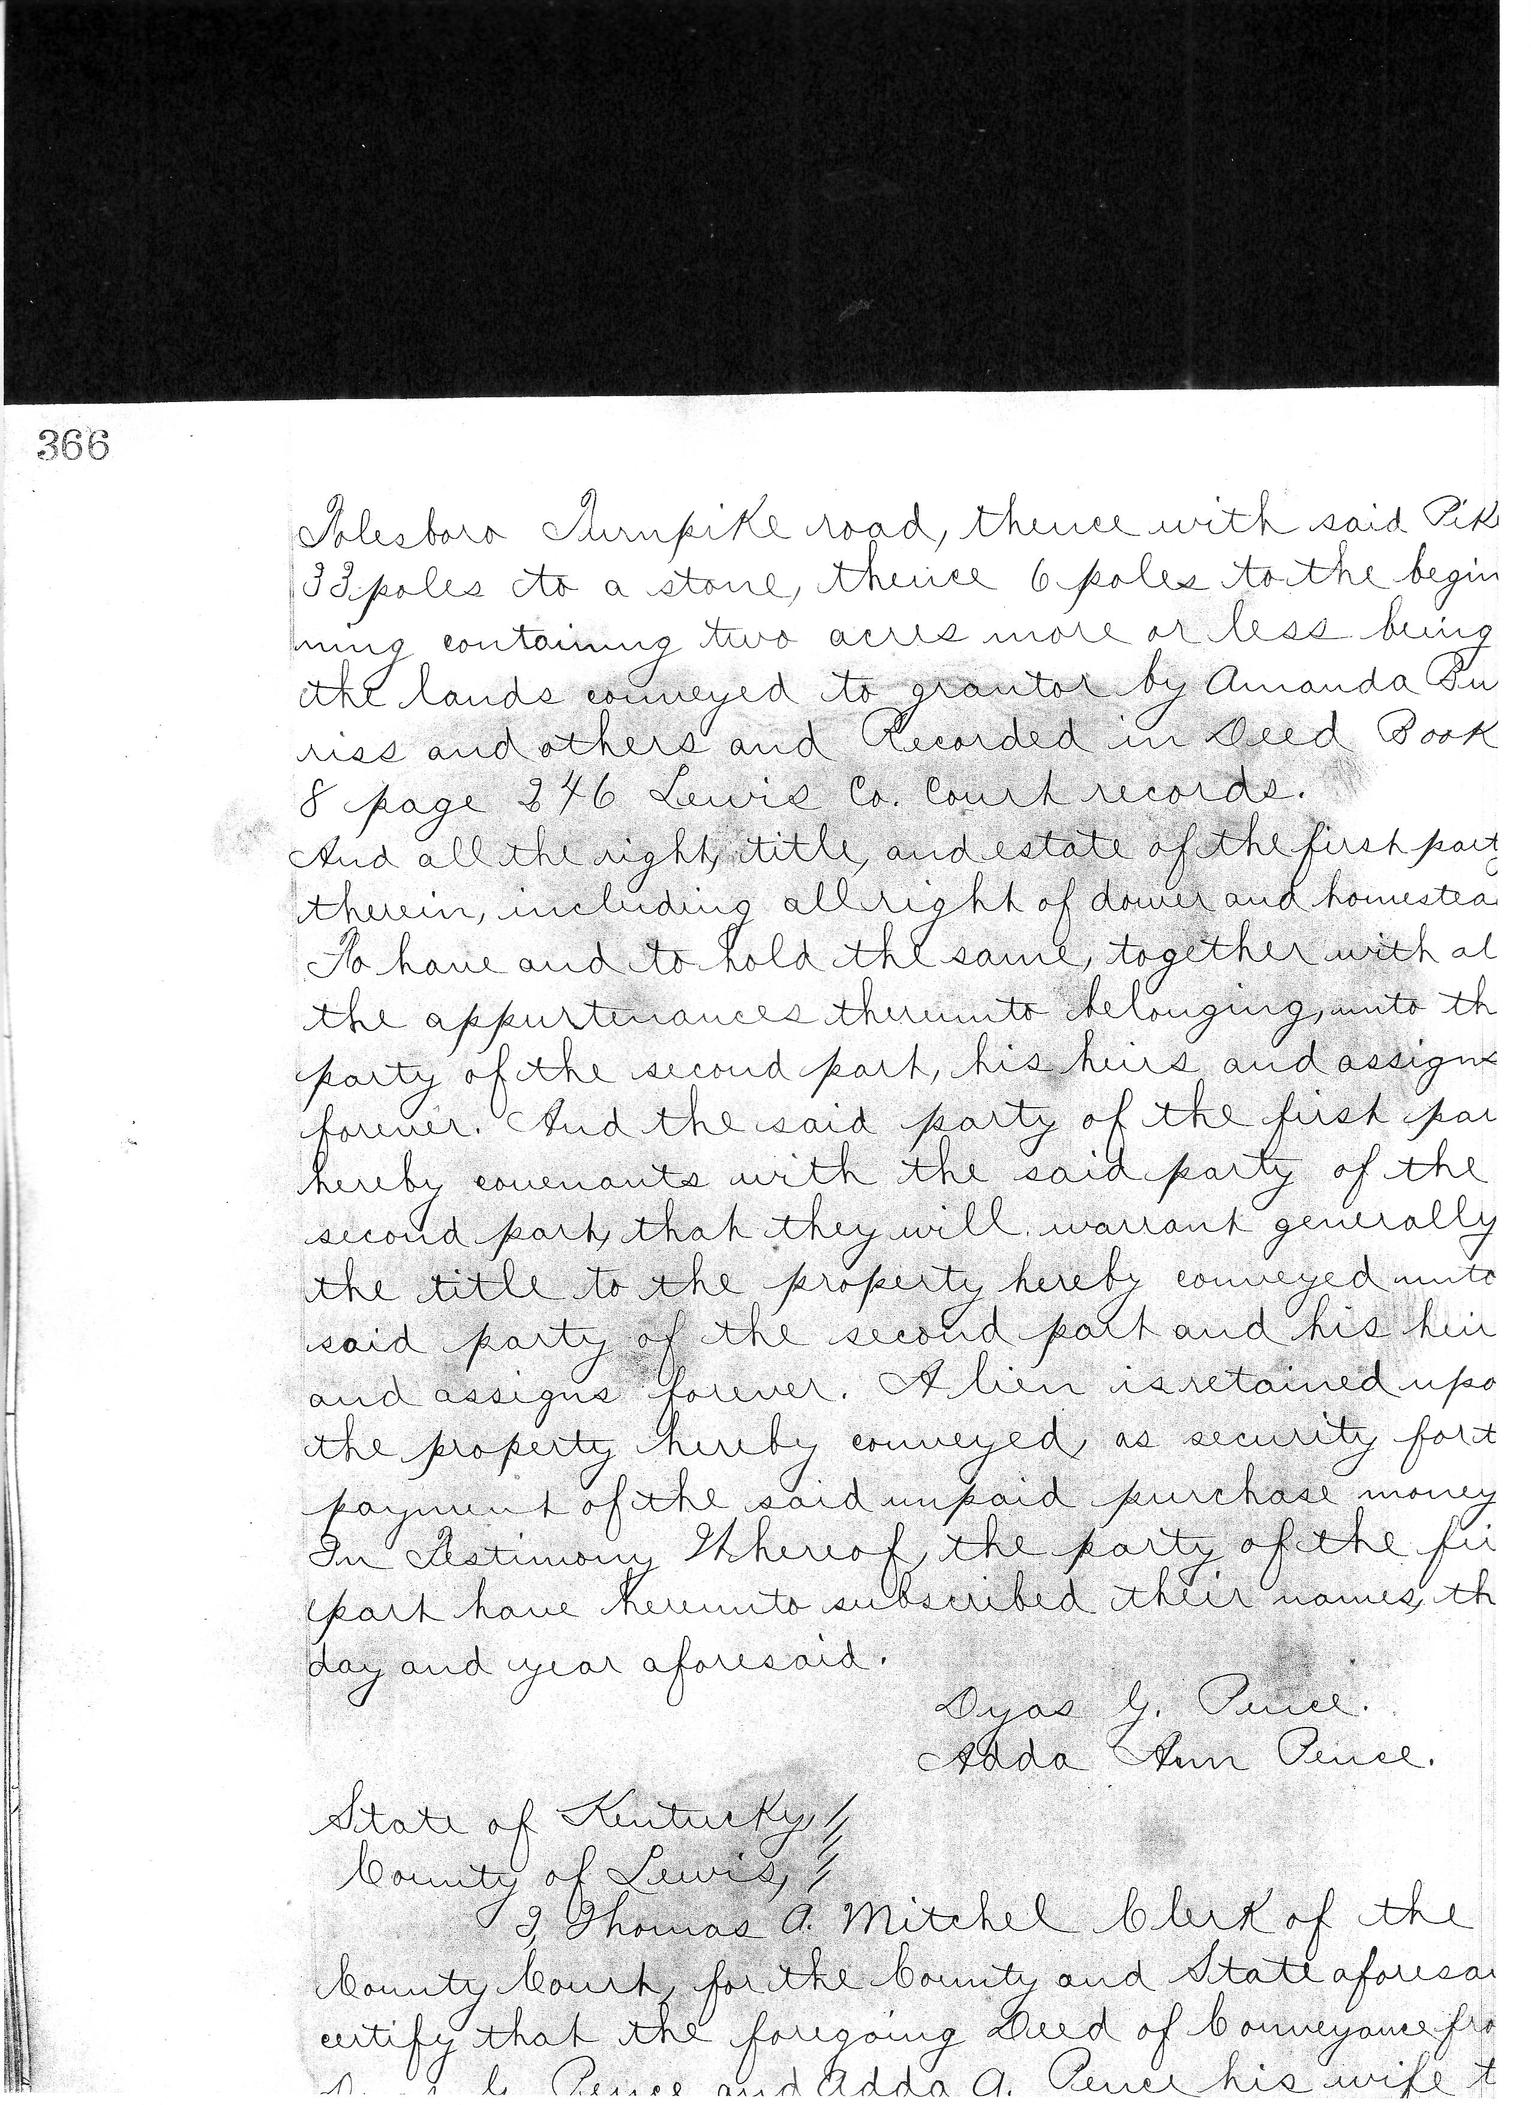 366
Tolesboro Turnpike road, thence with said Pik
33 poles to a stone, thence 6 poles to the begin
ning containing two acres more or less being
the lands conveyed to grantor by Amanda Bu
riss and others and Recorded in Deed Book
8 page 246 Lewis Co. Court records.
And all the right, title, and estate of the first party
therein, including all right of dower and homestea
To have and to hold the same, together with al
the appurtenances thereunto belonging, unto th
party of the second part, his heirs and assigns
forever. And the said party of the first par
hereby covenants with the said party of the
second part, that they will warrant generally
the title to the property hereby conveyed unto
said party of the second part and his heir
and assigns forever. A lien is retained upo
the property hereby conveyed, as security for t
payment of the said unpaid purchase money
In Testimony Whereof, the party of the fir
part have hereunto subscribed their names, th
day and year aforesaid.
Dyas G. Pence.
Adda Ann Pence.
State of Kentucky,
County of Lewis,
I, Thomas A. Mitchel Clerk of the
County Court, for the County and State aforesai
certify that the foregoing Deed of Conveyance fro
G. Pence and Adda A. Pence his wife t